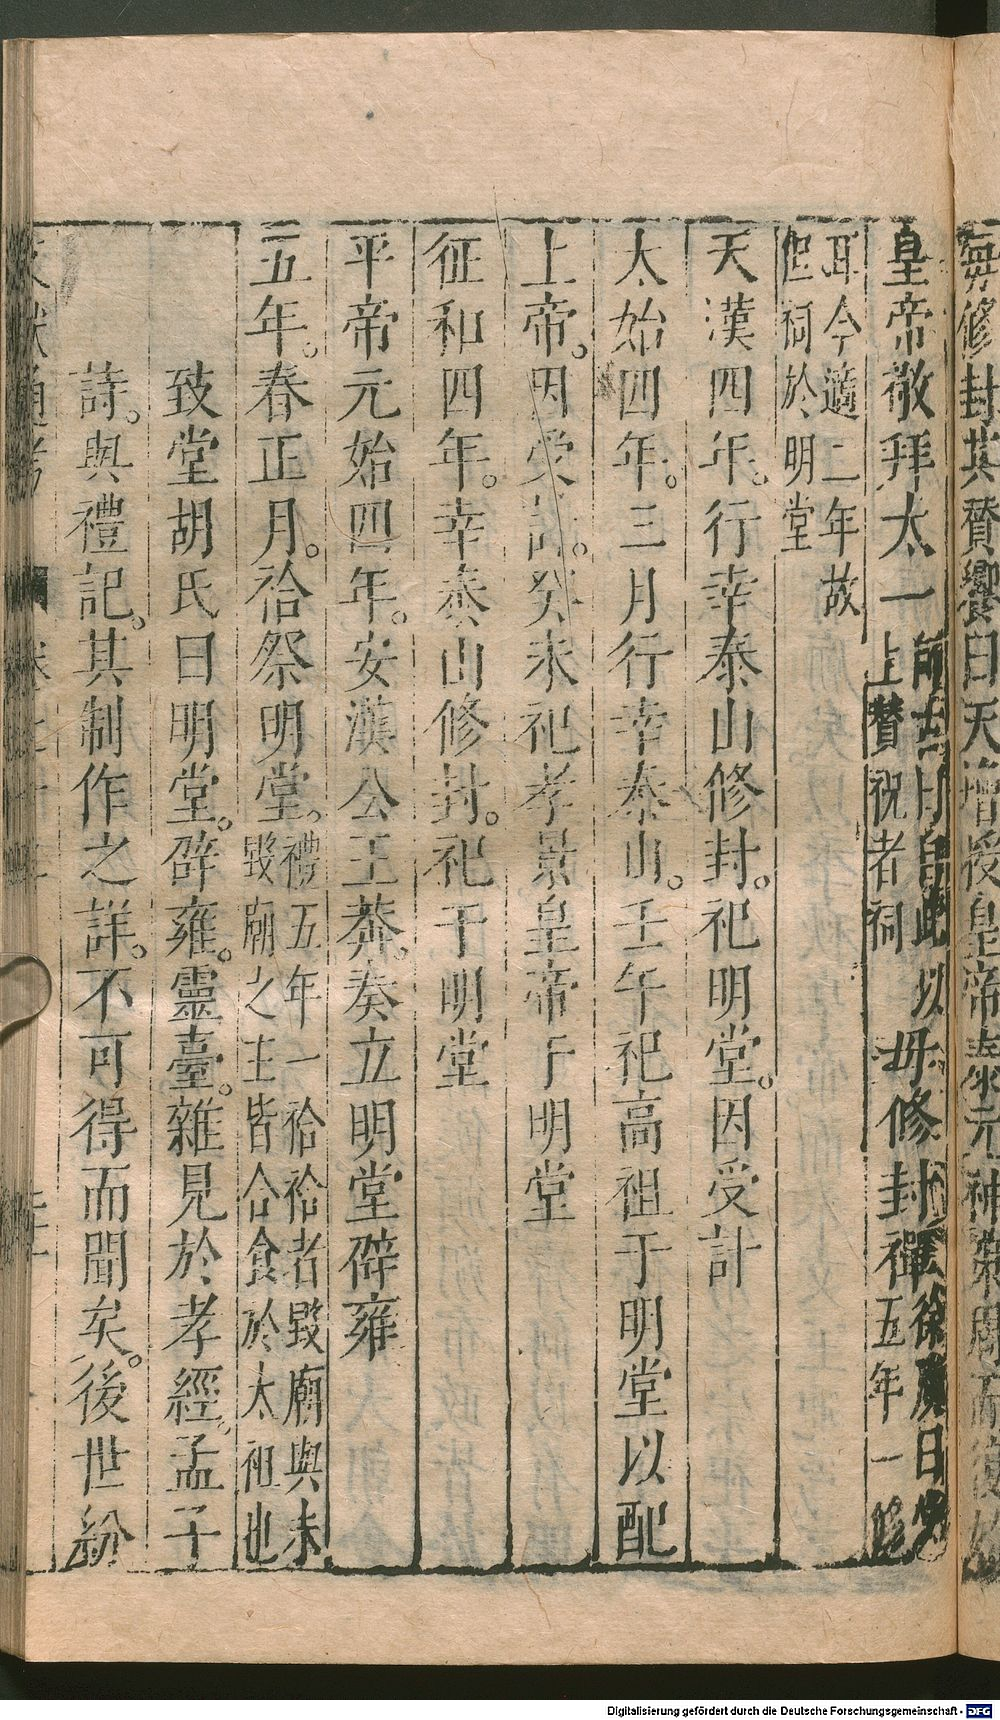 皇帝敬拜太一
上贊祝者祠
以毋修封禪
徐廣曰常
五年一修
耳今適二年故
但祠於明堂
天漢四年。行幸泰山修封。祀明堂。因受計
太始四年。三月行幸泰山。壬午祀高祖于明堂以配
上帝。因受計。癸未祀孝景皇帝于明堂
征和四年。幸泰山修封。祀于明堂
平帝元始四年。安漢公王莽。奏立明堂辟雍
五年。春正月。祫祭明堂。
禮五年一祫祫者毀廟與未
毀廟之主皆合食於太祖也
致堂胡氏曰明堂。辟雍。靈臺。雜見於孝經。孟子
詩。與禮記。其制作之詳。不可得而聞矣。後世紛
Digitalisierung gefördert durch die Deutsche Forschungsgemeinschaft - DFG